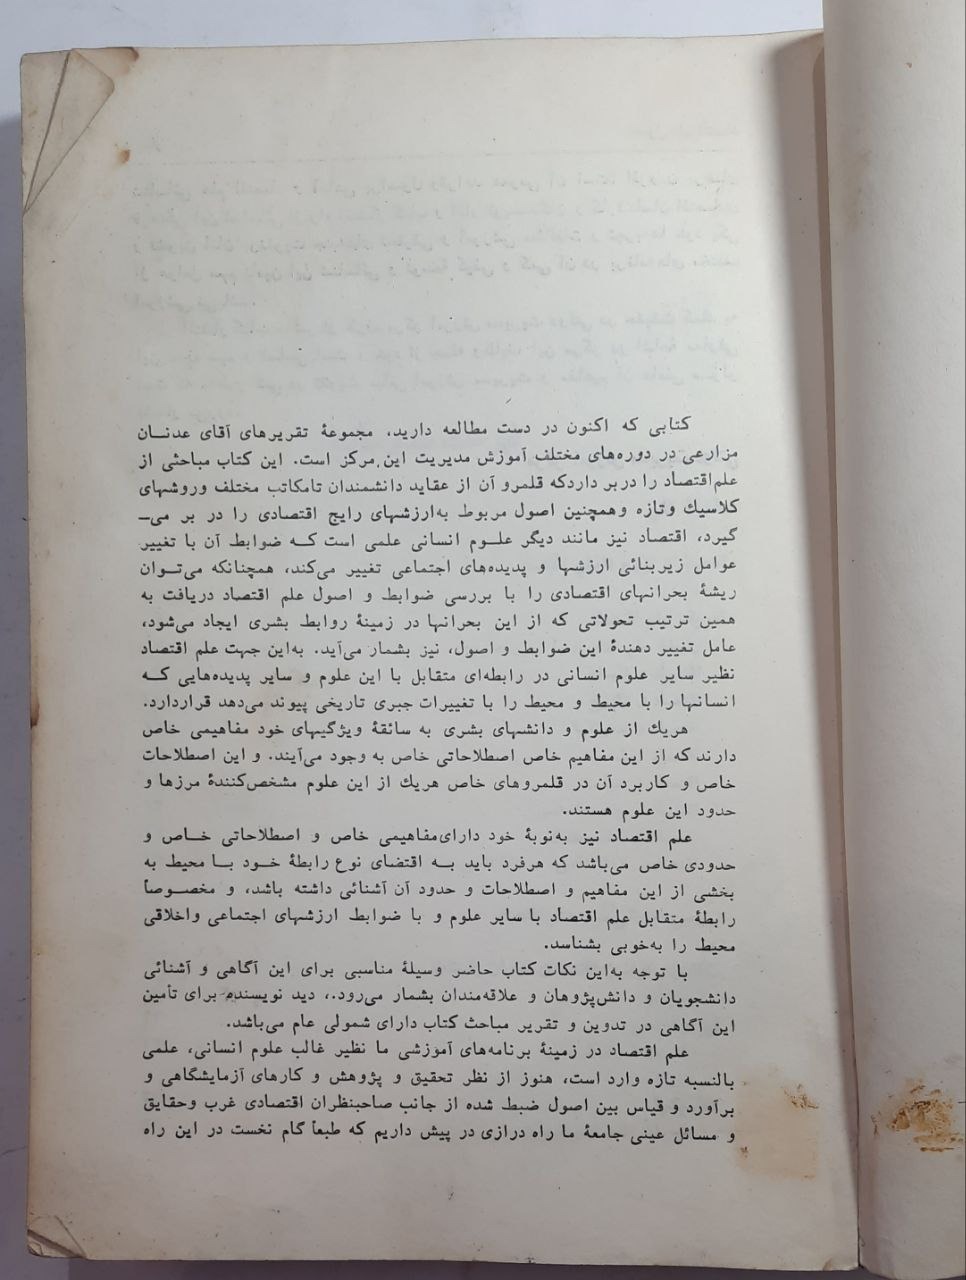 کتابی که اکنون در دست مطالعه دارید، مجموعهٔ تقریرهای آقای عدنـان
مزارعی در دوره‌های مختلف آموزش مدیریت این مرکز است. این کتاب مباحثی از
علم‌اقتصاد را دربر داردکه قلمرو آن از عقاید دانشمندان تامکاتب مختلف وروشهای
کلاسیك وتازه وهمچنین اصول مربوط به‌ارزشهای رایج اقتصادی را در بر می‌ـ
گیرد، اقتصاد نیز مانند دیگر علـوم انسانی علمی است کـه ضوابط آن با تغییر
عوامل زیربنائی ارزشها و پدیده‌های اجتماعی تغییر می‌کند، همچنانکه می‌تـوان
ریشهٔ بحرانهای اقتصادی را با بررسی ضوابط و اصول علم اقتصاد دریافت به
همین ترتیب تحولاتی که از این بحرانها در زمینهٔ روابط بشری ایجاد می‌شود،
عامل تغییر دهندهٔ این ضوابط و اصول، نیز بشمار می‌آید. به‌این جهت علم اقتصاد
نظیر سایر علوم انسانی در رابطه‌ای متقابل با این علوم و سایر پدیده‌هایی کـه
انسانها را با محیط و محیط را با تغییرات جبری تاریخی پیوند می‌دهد قراردارد.
هریك از علوم و دانشهای بشری به سائقهٔ ویژگیهای خود مفاهیمی خاص
دارند که از این مفاهیم خاص اصطلاحاتی خاص به وجود می‌آیند. و این اصطلاحات
خاص و کاربرد آن در قلمروهای خاص هریك از این علوم مشخص‌کنندهٔ مرزها و
حدود این علوم هستند.
علم اقتصاد نیز به‌نوبهٔ خود دارای‌مفاهیمی خاص و اصطلاحاتی خـاص و
حدودی خاص می‌باشد که هرفرد باید بـه اقتضای نوع رابطهٔ خـود بـا محیط به
بخشی از این مفاهیم و اصطلاحات و حدود آن آشنائی داشته باشد، و مخصـوصاً
رابطهٔ متقابل علم اقتصاد با سایر علوم و با ضوابط ارزشهای اجتماعی واخلاقی
محیط را به‌خوبی بشناسد.
با توجه به‌این نکات کتاب حاضر وسیلهٔ مناسبی برای این آگاهی و آشنائی
دانشجویان و دانش‌پژوهان و علاقه‌مندان بشمار می‌رود.، دید نویسنده برای تأمین
این آگاهی در تدوین و تقریر مباحث کتاب دارای شمولی عام می‌باشد.
علم اقتصاد در زمینهٔ برنامه‌های آموزشی ما نظیر غالب علوم انسانی، علمی
بالنسبه تازه وارد است، هنوز از نظر تحقیق و پژوهش و کارهای آزمایشگاهی و
برآورد و قیاس بین اصول ضبط شده از جانب صاحبنظران اقتصادی غرب وحقایق
و مسائل عینی جامعهٔ ما راه درازی در پیش داریم که طبعاً گام نخست در این راه